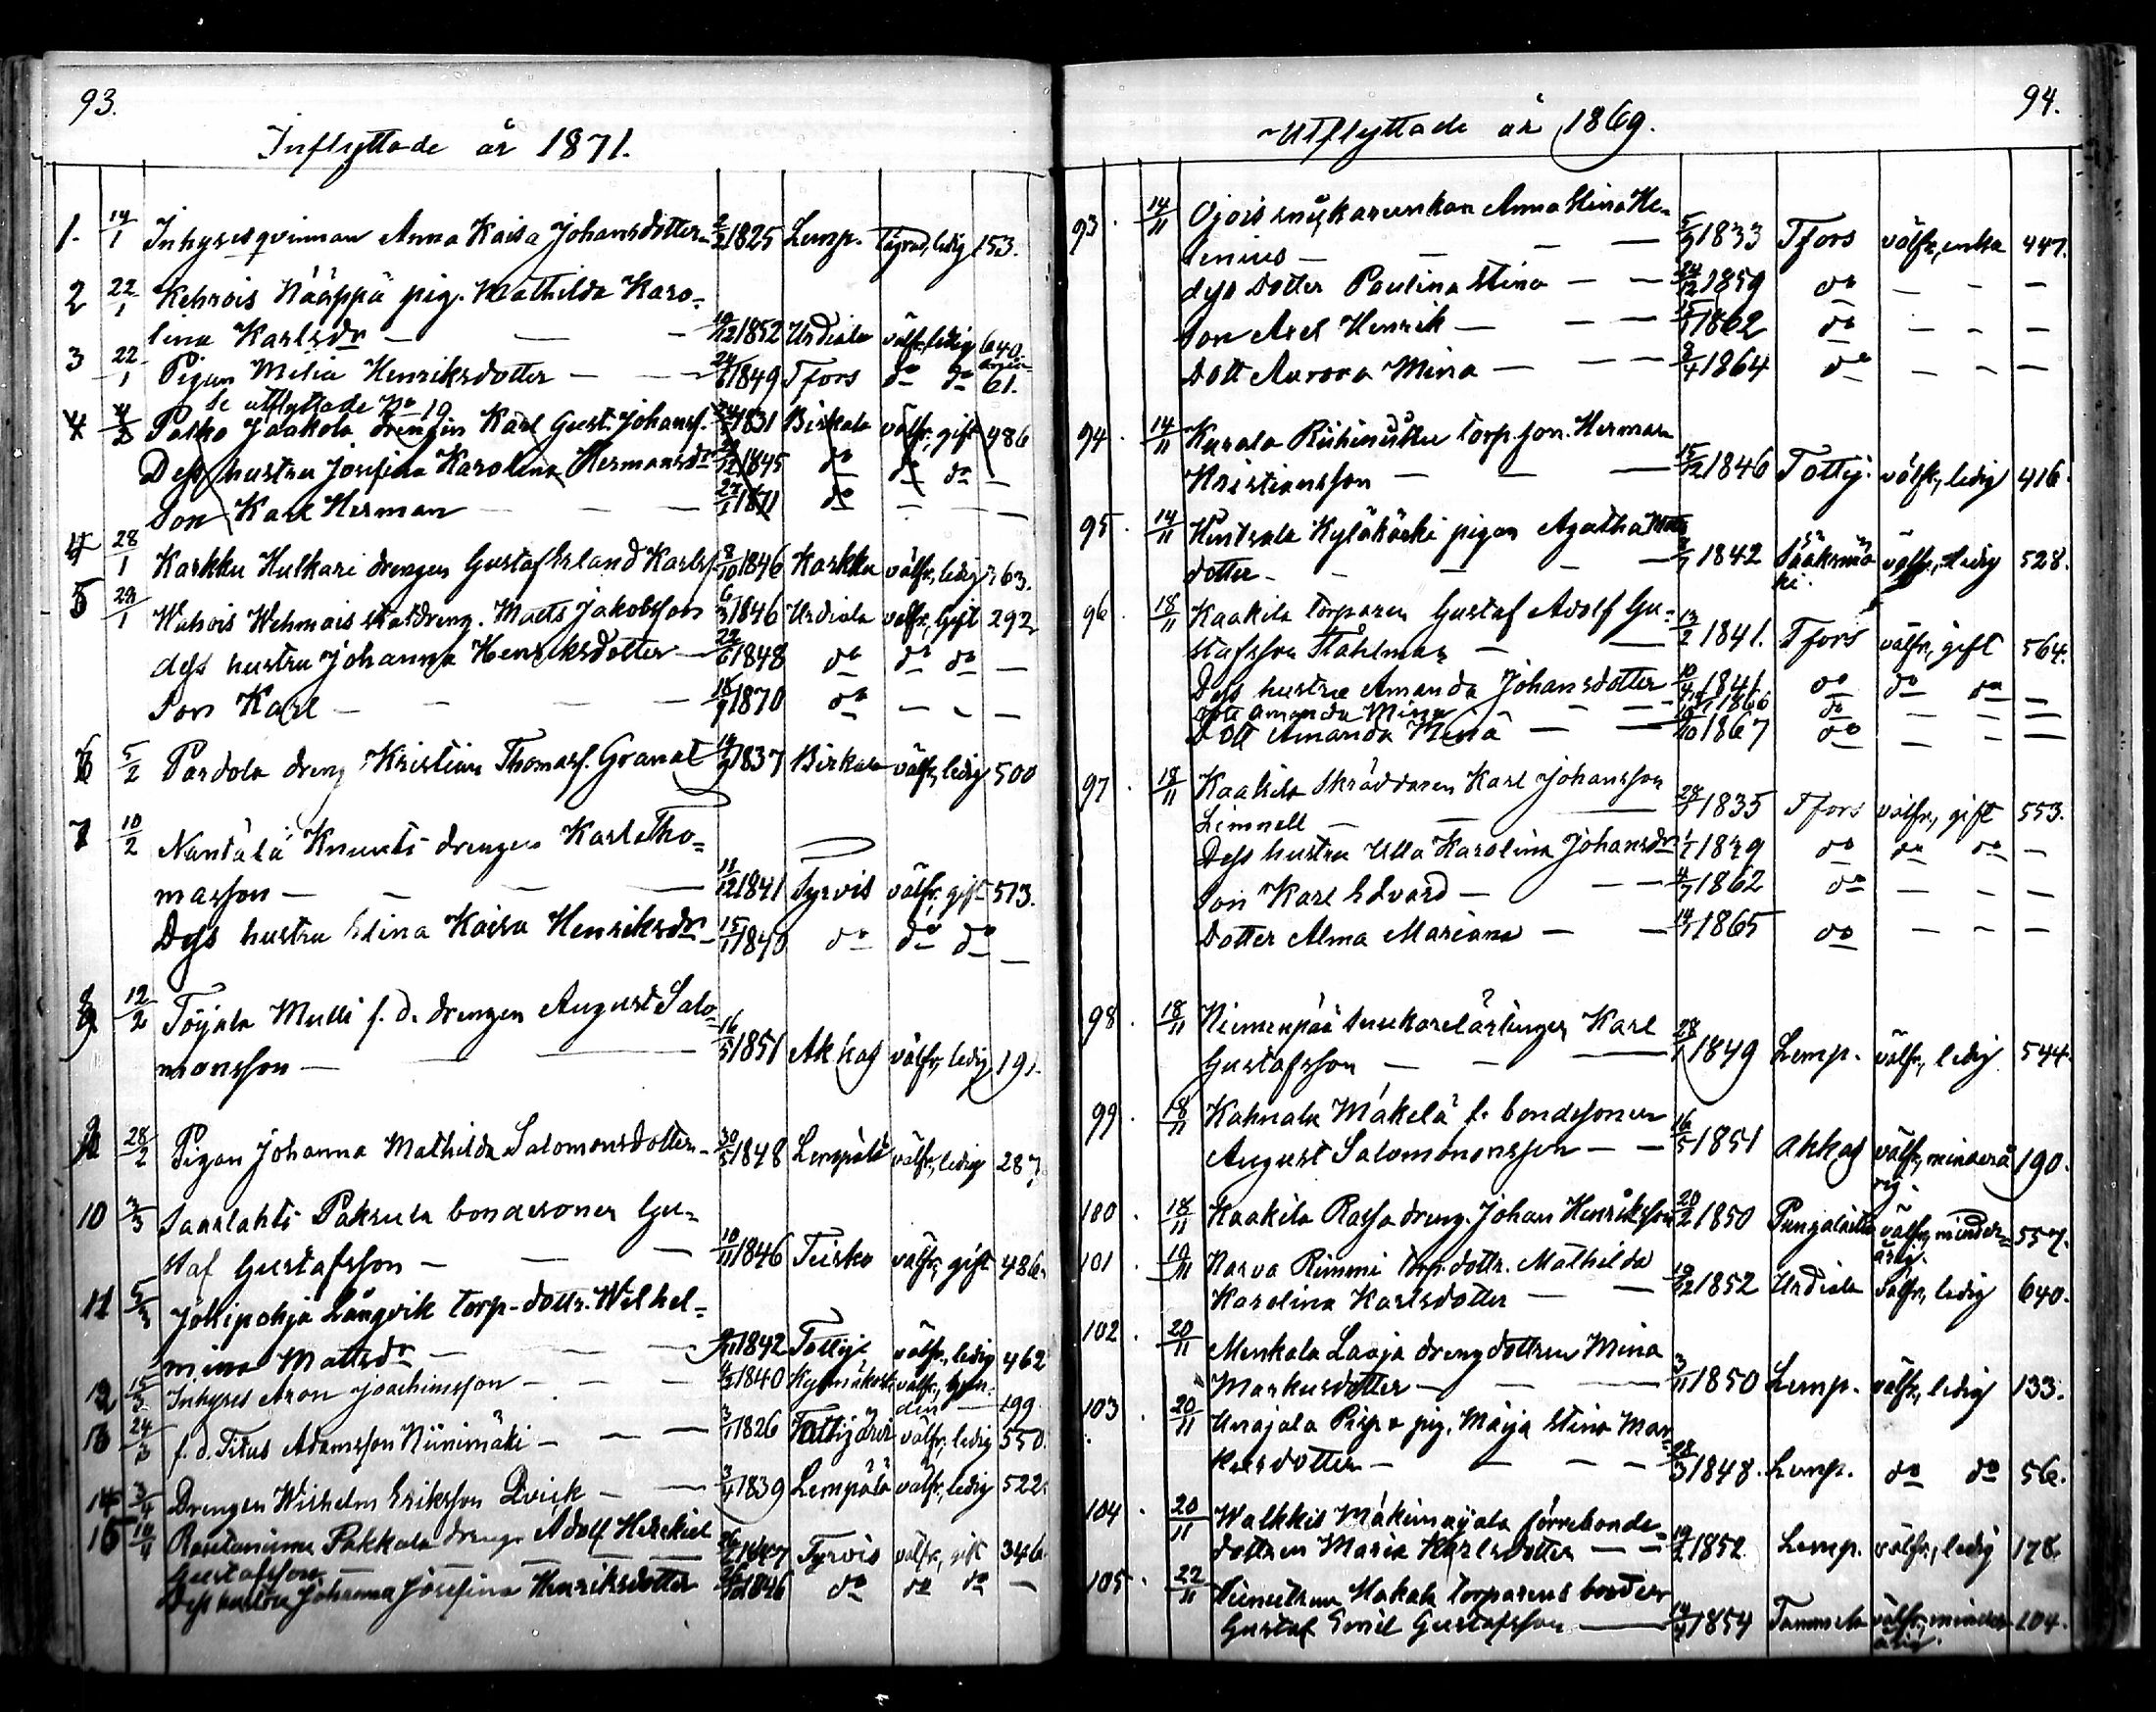 93.
Inflyttade år 1871.
1. 14/1 Inhysesqvinnan Anna Kaisa Johansdotter 1825 Lemp. ledig 153.
2 22/1 Kehrois Nääppä pig. Mathilda Karo-
lina Karlsdr — — 19/12 1852 Urdiala välfr, ledig 640
3 22/1 Pigan Milia Henriksdotter — — 1849 Tfors do do 61.
Se utflyttade No 19
4 Palko Jaakola drengen Karl Gust. Johanss. 1831 Birkala välfr, gift 486
Dess hustru Josefina Karolina Hermansdr 1845 do do do —
Son Karl Herman — — — 1871 do — —
4 28/1 Karkku Hulkari drengen Gustaf Erland Karlss. 8/10 1846 Karkku välfr, ledig 363.
5 1 Wahois Wehmais statdreng. Matts Jakobsson 1846 Urdiala välfr, gift 292
dess hustru Johanna Henriksdotter — 22/6 1848 do do do —
Son Karl — — — — 1870 do — — —
6 5/2 Pardola dreng Kristian Thomass. Granat 1837 Birkala välfr, ledig 500
7 10/2 Nantälä Knuuti drengen Karl Tho-
masson — — — — 11/12 1841 Tyrvis välfr, gift 513.
Dess hustru Stina Kaisa Henriksdr — 1840 do do do —
8 12/2 Toijala Mulli f. d. drengen August Salo-
monsson — — — 16/5 1851 Akkas välfr, ledig 191.
9 28/2 Pigan Johanna Mathilda Salomonsdotter — 30/5 1848 Lempälä välfr, ledig 287
10 Saarlahti Paksula bondesonen Gu-
staf Gustafsson — — — 10/11 1846 Teisko välfr, gift 486.
11 Jokipohja Långvik torp-dottr. Wilhel-
mina Mattsdr — — — 1842 Tottij. välfr, ledig 462
12 15/3 Inhyses Aron Joachimsson — — — 1840 välfr, 199
13 24/3 f. d. Titus Adamsson Niinimäki — — — 1826 Tottijärvi välfr, ledig 550.
14 3/4 Drengen Wilhelm Eriksson Qvick — — 1839 Lempälä välfr, ledig 522.
15 Rautaniemi Pakkala dreng. Adolf Hezekiel
Gustafsson — — Tyrvis välfr, gift 346
Dess hustru Johanna Josefina Henriksdotter 1846 do do do —
94.
Utflyttade år 1869.
93. 14/11 Anna Stina He-
lenius — — — 1833 Tfors välfr, enka 447.
dess dotter Paulina Stina — — 1859 do — — —
Son Axel Henrik — — — 1862 do — — —
Dott Aurora Mina — — — 1864 do — — —
94. 14/11 Kurala Riihiniittu torp. son. Herman
Kristiansson — — — 1846 Tottij. välfr, ledig 416.
95. 14/11 Huntsala Kyläkoski pigan Agatha
dotter — — — 1842 Pääkinmä-
ki. välfr, ledig 528.
96. 18/11 Kaakila torparen Gustaf Adolf Gu-
stafsson Ståhlman — — 1841. Tfors välfr, gift 564.
Dess hustru Amanda Johansdotter 1841 do do do —
dott Amanda Mina — — — 1866 do — — —
Dott Amanda Mina — — 1867 do — — —
97. 18/11 Kaakila Skräddaren Karl Johansson
Limnell — — — 1835 Tfors välfr, gift 553.
Dess hustru Ulla Karolina Johansdr 1829 do do do —
Son Karl Edvard — — — 1862 do — — —
Dotter Alma Mariana — — 1865 do — — —
98. 18/11 Niemenpää snickarelärlingen Karl
Gustafsson — — — 1849 Lemp. välfr, ledig 544.
99. 18/11 Kahnala Mäkelä f. bondesonen
August Salomononsson — — 16/5 1851 Akkas välfr, minderå
rig. 190.
100. 18/11 Kaakila Rassa dreng. Johan Henriksson 1850 Pungalaitio välfr, minder-
årig. 557.
101. 19/11 Narva Rimmi torp. dottr. Mathilda
Karolina Karlsdotter — — 19/12 1852 Urdiala välfr, ledig 640.
102. 20/11 Menkala Laaja drengdottren Mina
Markusdotter — — — 1850 Lemp. välfr, ledig 133.
103. 20/11 pig. Maija Stina Mar-
kusdotter — — — 1848. Lemp. do do 56.
104. 20/11 Walkkis Mäkimaijala förrebonde-
dottren Maria Karlsdotter — — 1852 Lemp. välfr, ledig 178.
105. 22/11 Hakala torparens broder
Gustaf Emil Gustafsson — 1854 Tammela välfr, minder-
årig. 104.